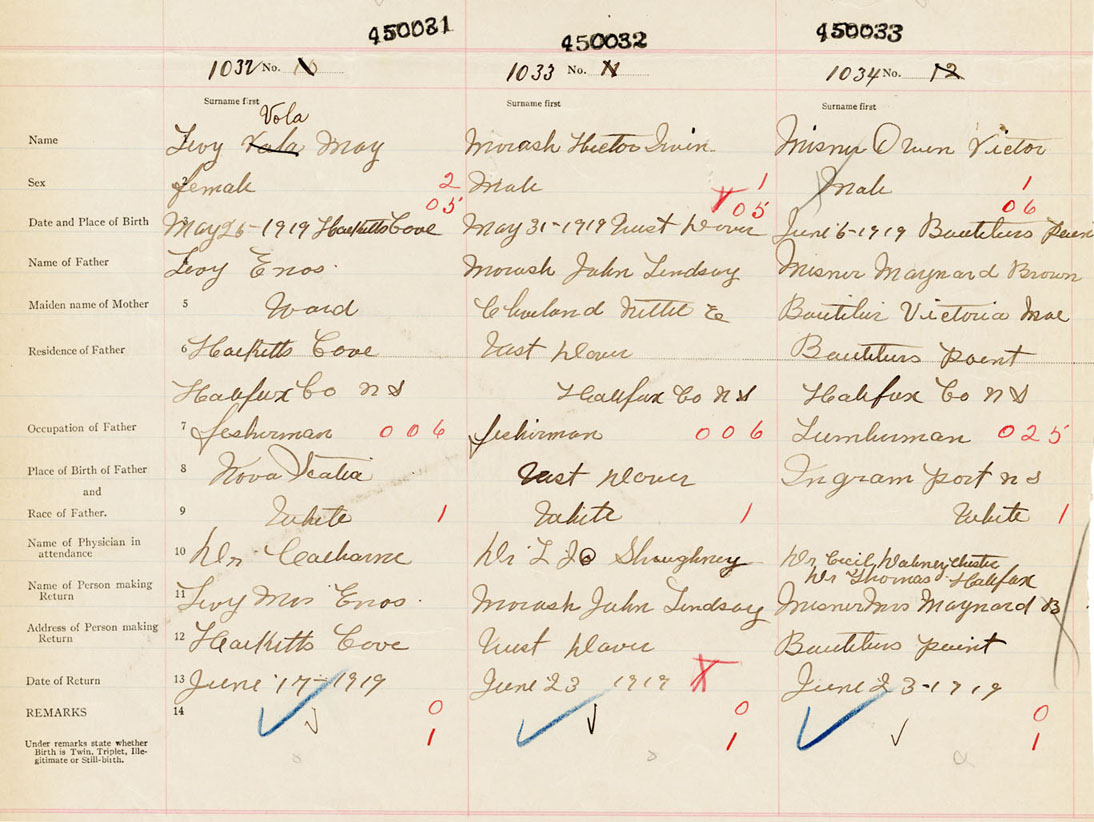 450031 450032 450033
1032 No. 10 1033 No. 11 1034 No. 12
Surname first Surname first Surname first
Vola
Name Levy May Morash Hector Irvin Misner Owen Victor
Sex 2 female 2 Male 1 Male 1
05 05 06
Date and Place of Birth 3 May 26-1919 Hacketts Cove May 31-1919 West Dover June 6-1919 Boutiliers Point
Name of Father 4 Levy Enos. Morash John Lindsay Misner Maynard Brown
Maiden name of Mother 5 Ward Cleveland Nettie E Boutilier Victoria Mae
Residence of Father 6 Hacketts Cove West Dover Boutiliers Point
Halifax Co N S Halifax Co N S Halifax Co N S
Occupation of Father 7 fisherman 006 fisherman 006 Lumberman 025
Place of Birth of Father 8 Nova Scotia West Dover Ingram Port N S
and
Race of Father. 9 White 1 White 1 White 1
Name of Physician in
attendance 10 Dr Dr Shaughney Dr Cecil Chester
Dr Thomas Halifax
Name of Person making
Return 11 Levy Mrs Enos. Morash John Lindsay Misner Mrs Maynard B
Address of Person making
Return 12 Hacketts Cove West Dover Boutiliers Point
Date of Return 13 June 17-1919 June 23 1919 June 23-1919
REMARKS 14 0 0 0
Under remarks state whether 1 1 1
Birth is Twin, Triplet, Ille-
gitimate or Still-birth.